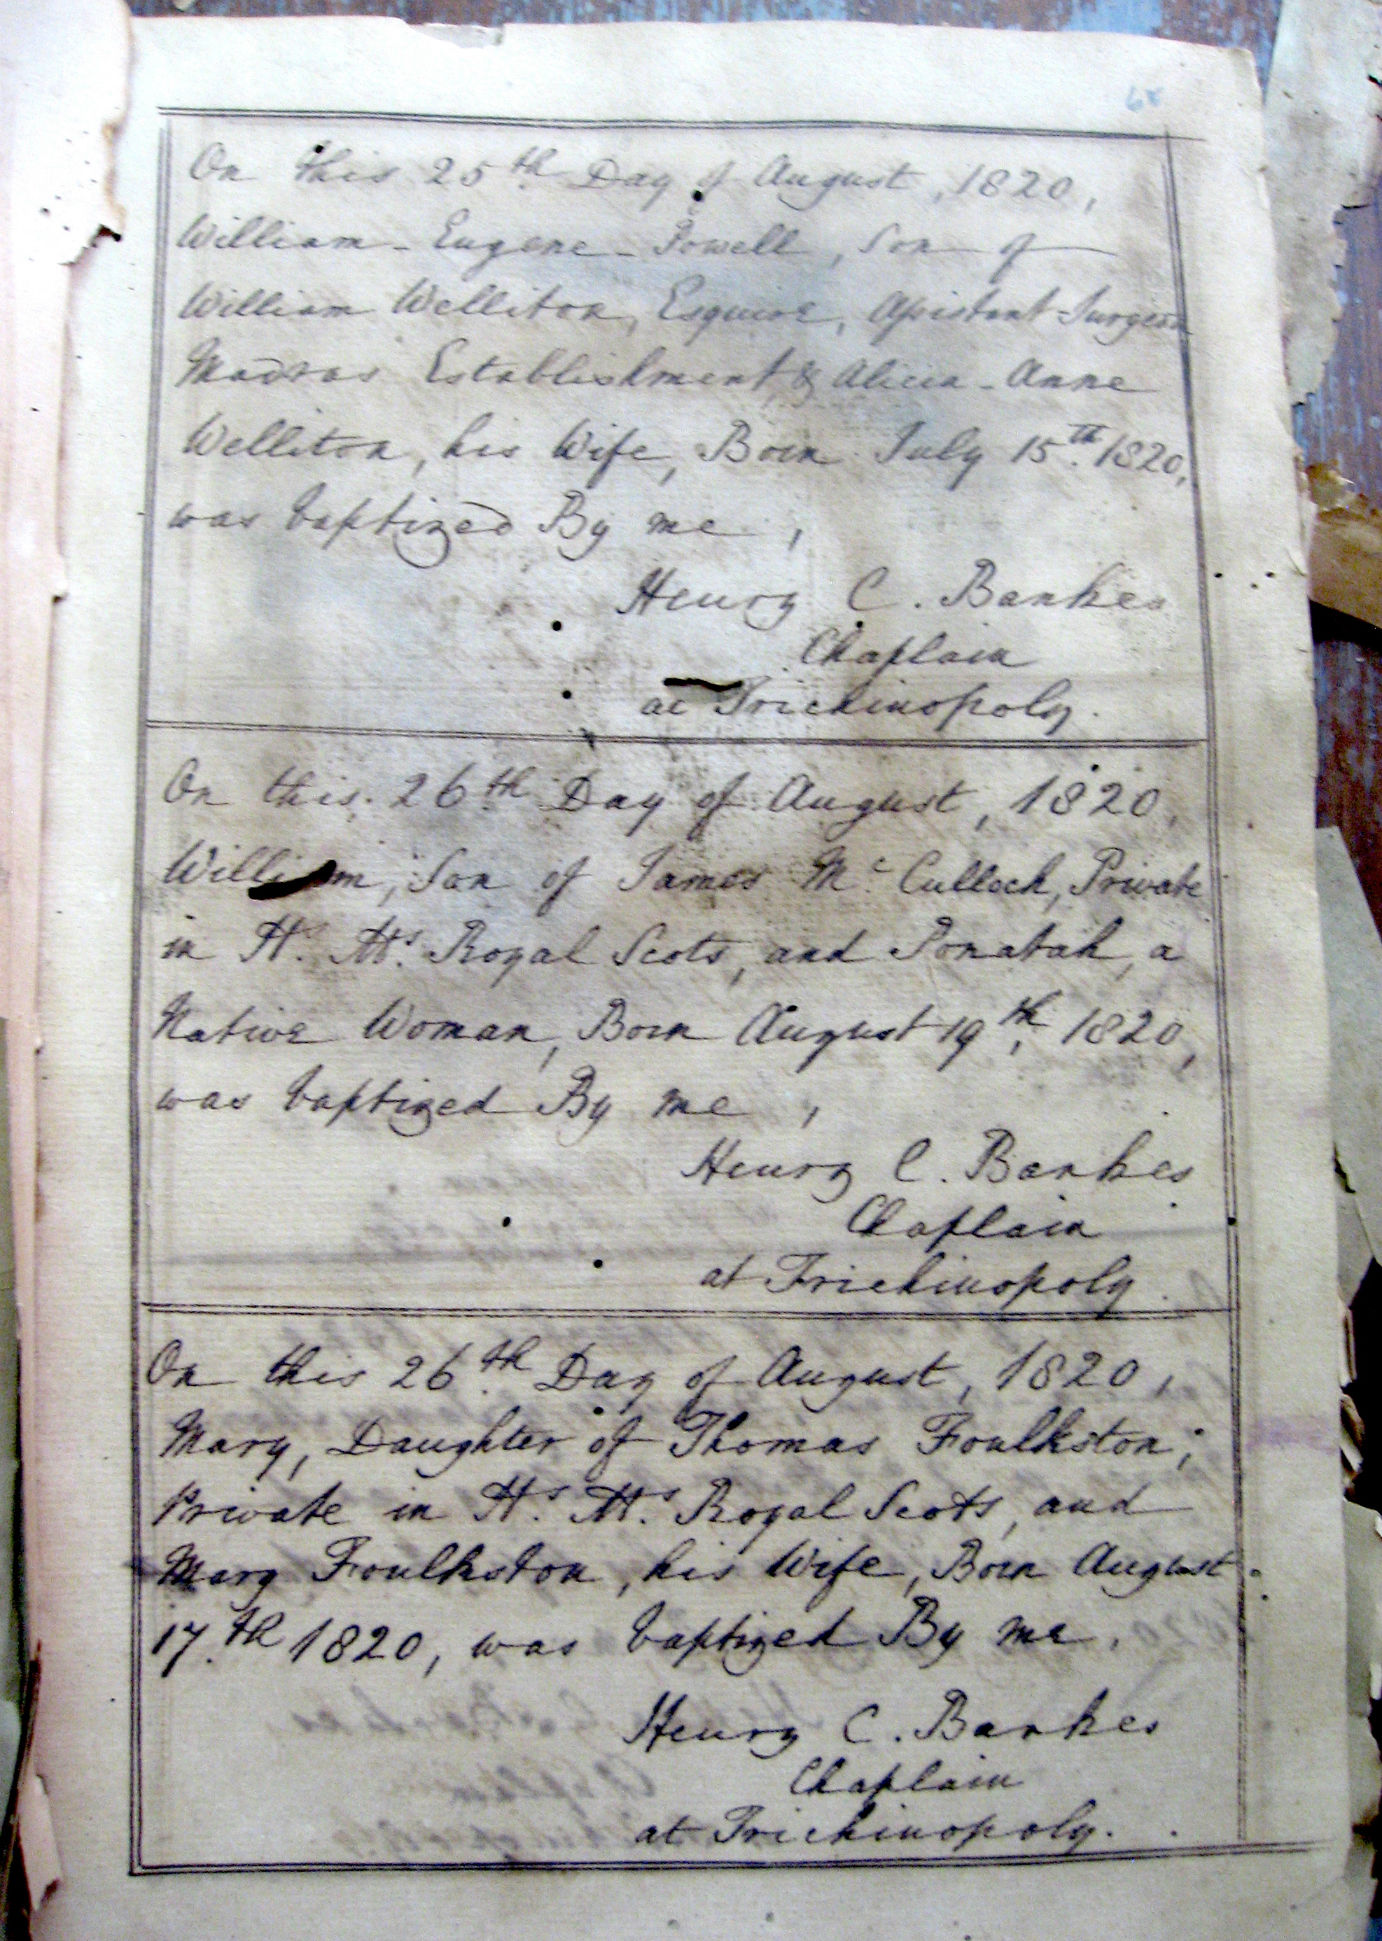 On this 25th Day of August, 1820,
William - Eugene - Powell, Son of
William Welliton, Esquire, Assistant Surgeon
Madras Establishment & Alicia - Anne
Welliton, his Wife, Born July 15th 1820,
was baptized By me,
Henry C. Bankes
Chaplain
at Trichinopoly.
On this 26th Day of August, 1820,
William, Son of James Mc Culloch, Private
in Hs. Ms. Royal Scots, and Ponatah, a
Native Woman, Born August 19th, 1820,
was baptized By me,
Henry C. Bankes
Chaplain
at Trichinopoly.
On this 26th Day of August, 1820,
Mary, Daughter of Thomas Foulkston;
Private in Hs. Ms. Royal Scots, and
Mary Foulkston, his Wife, Born August
17th 1820, was baptized By me,
Henry C. Bankes
Chaplain
at Trichinopoly.